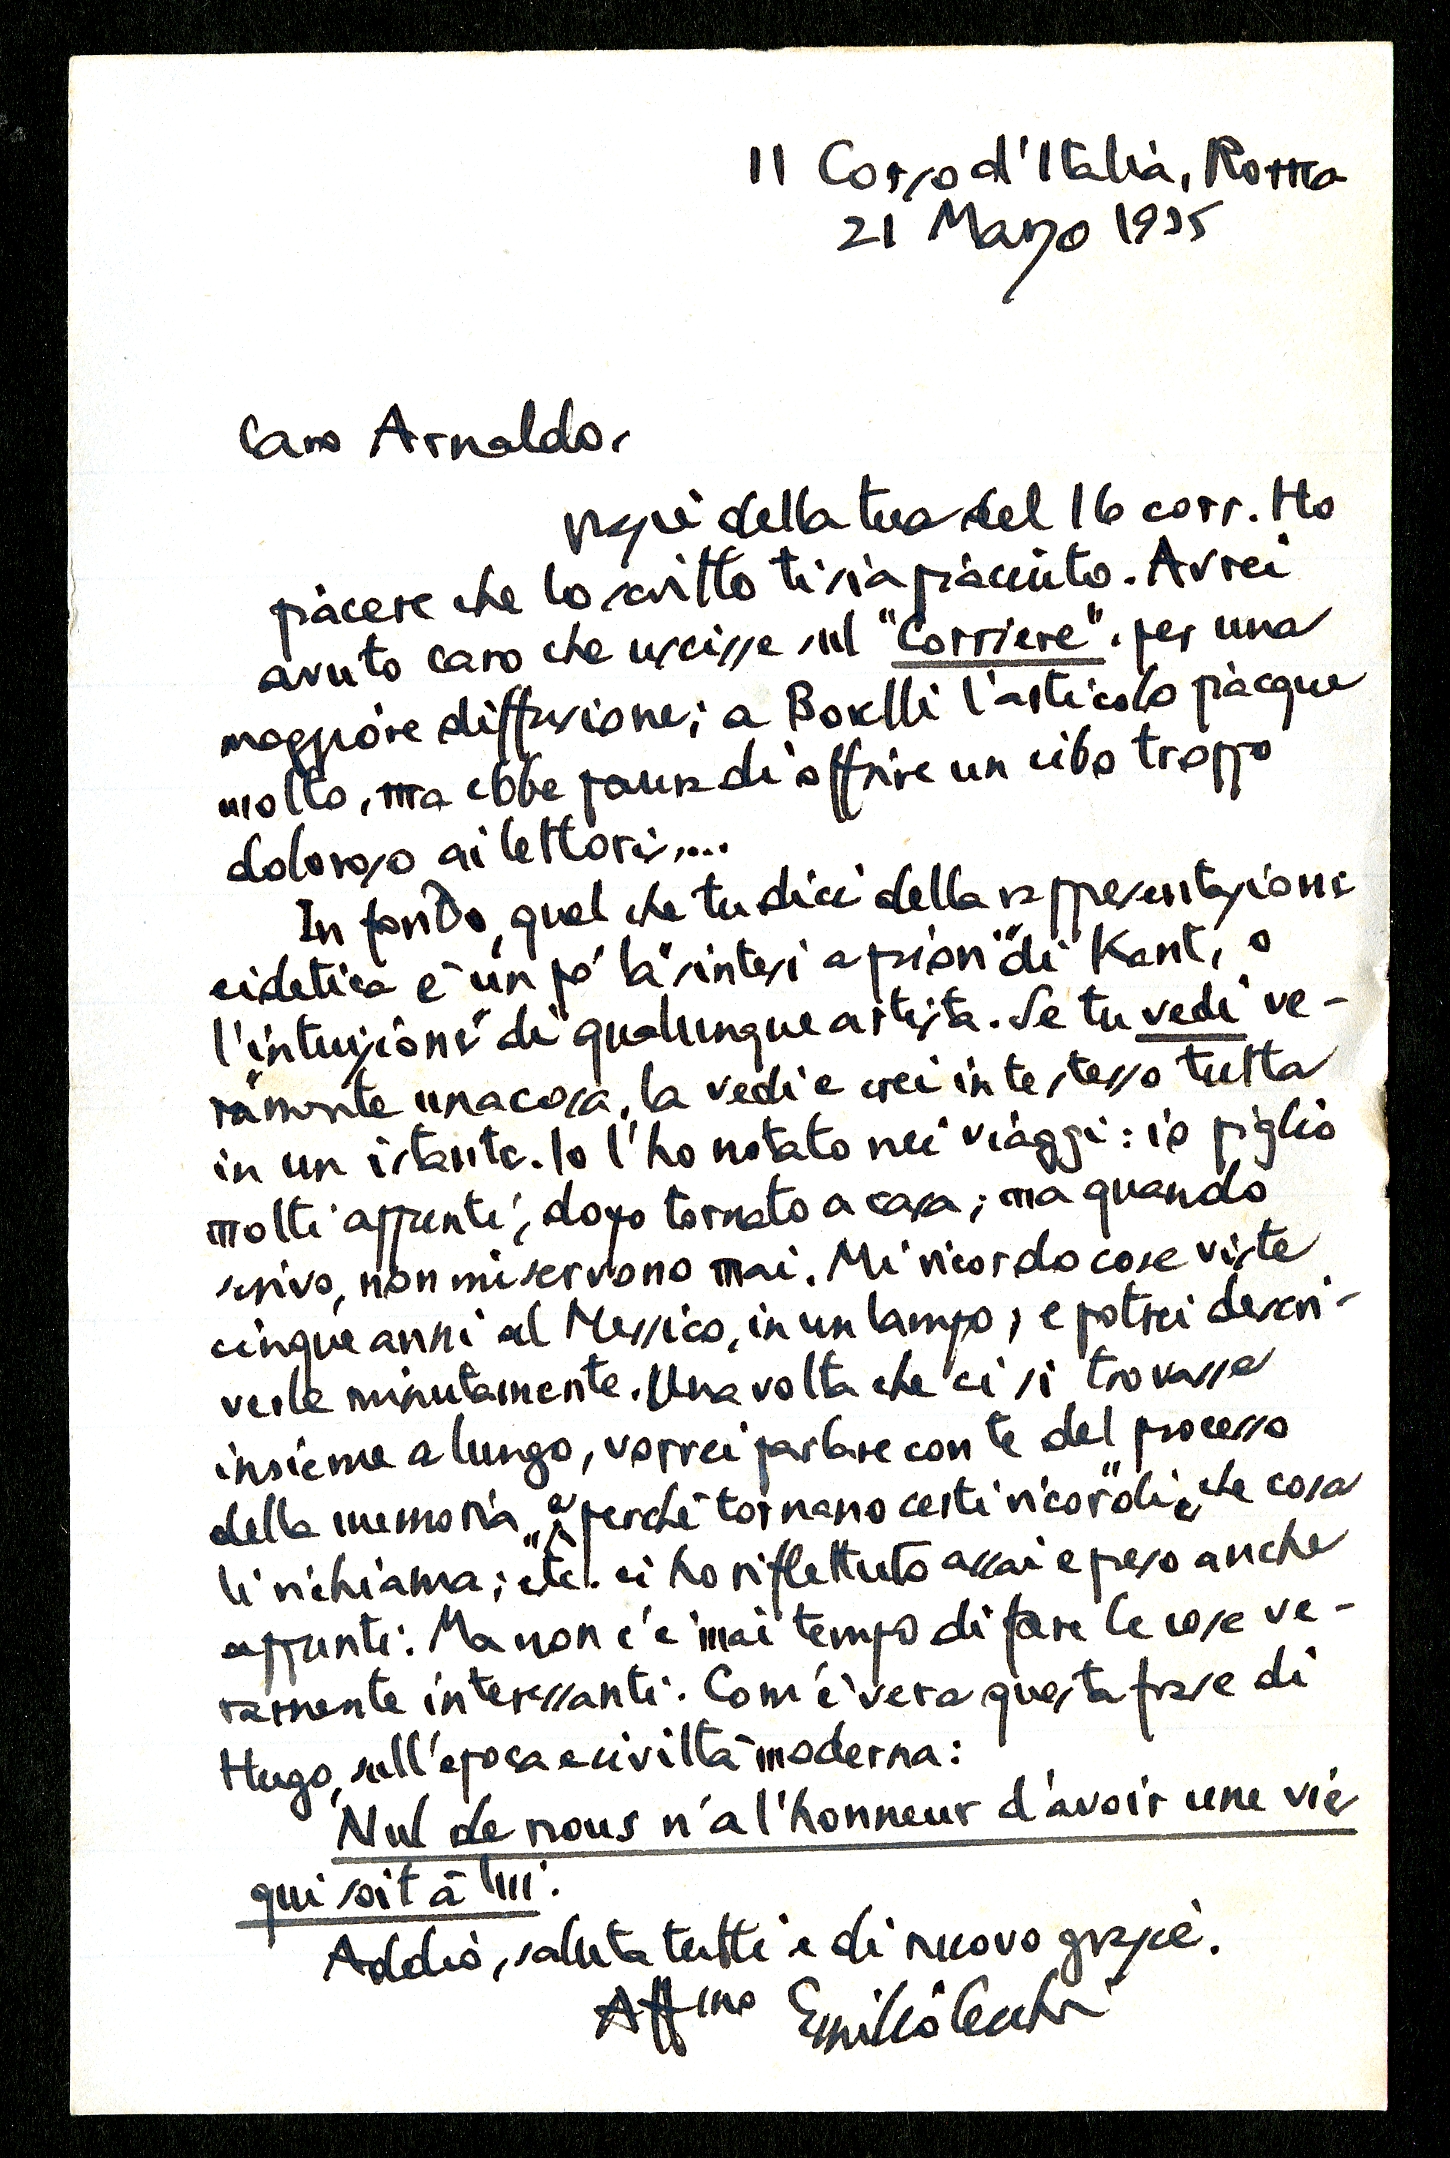 11 Corso d'Italia, Roma
21 Marzo 1935
Caro Arnaldo,
grazie della tua del 16 corr. Ho
piacere che lo scritto ti sia piaciuto. Avrei
avuto caro che uscisse sul "Corriere", per una
maggiore diffusione; a Borelli l'articolo piacque
molto, ma ebbe paura di offrire un cibo troppo
doloroso ai lettori....
In fondo, quel che tu dici della rappresentazione
eidetica è un po' la "sintesi a priori" di Kant, o
l'"intuizione" di qualunque artista. Se tu vedi ve-
ramente una cosa, la vedi e crei in te stesso tutta
in un istante. Io l'ho notato nei viaggi: io piglio
molti appunti, dopo tornato a casa; ma quando
scrivo, non mi servono mai. Mi ricordo cose viste
cinque anni al Messico, in un lampo; e potrei descri-
verle minutamente. Una volta che ci si trovasse
insieme a lungo, vorrei parlare con te del processo
della memoria, e "perché tornano certi ricordi", "e che cosa
li richiama"; etc. ci ho riflettuto assai e preso anche
appunti. Ma non c'è mai tempo di fare le cose ve-
ramente interessanti. Com'è vera questa frase di
Hugo, sull'epoca e civiltà moderna:
Nul de nous n'a l'honneur d'avoir une vie
qui soit à lui.
Addio, saluta tutti e di nuovo grazie.
Affmo Emilio Cecchi